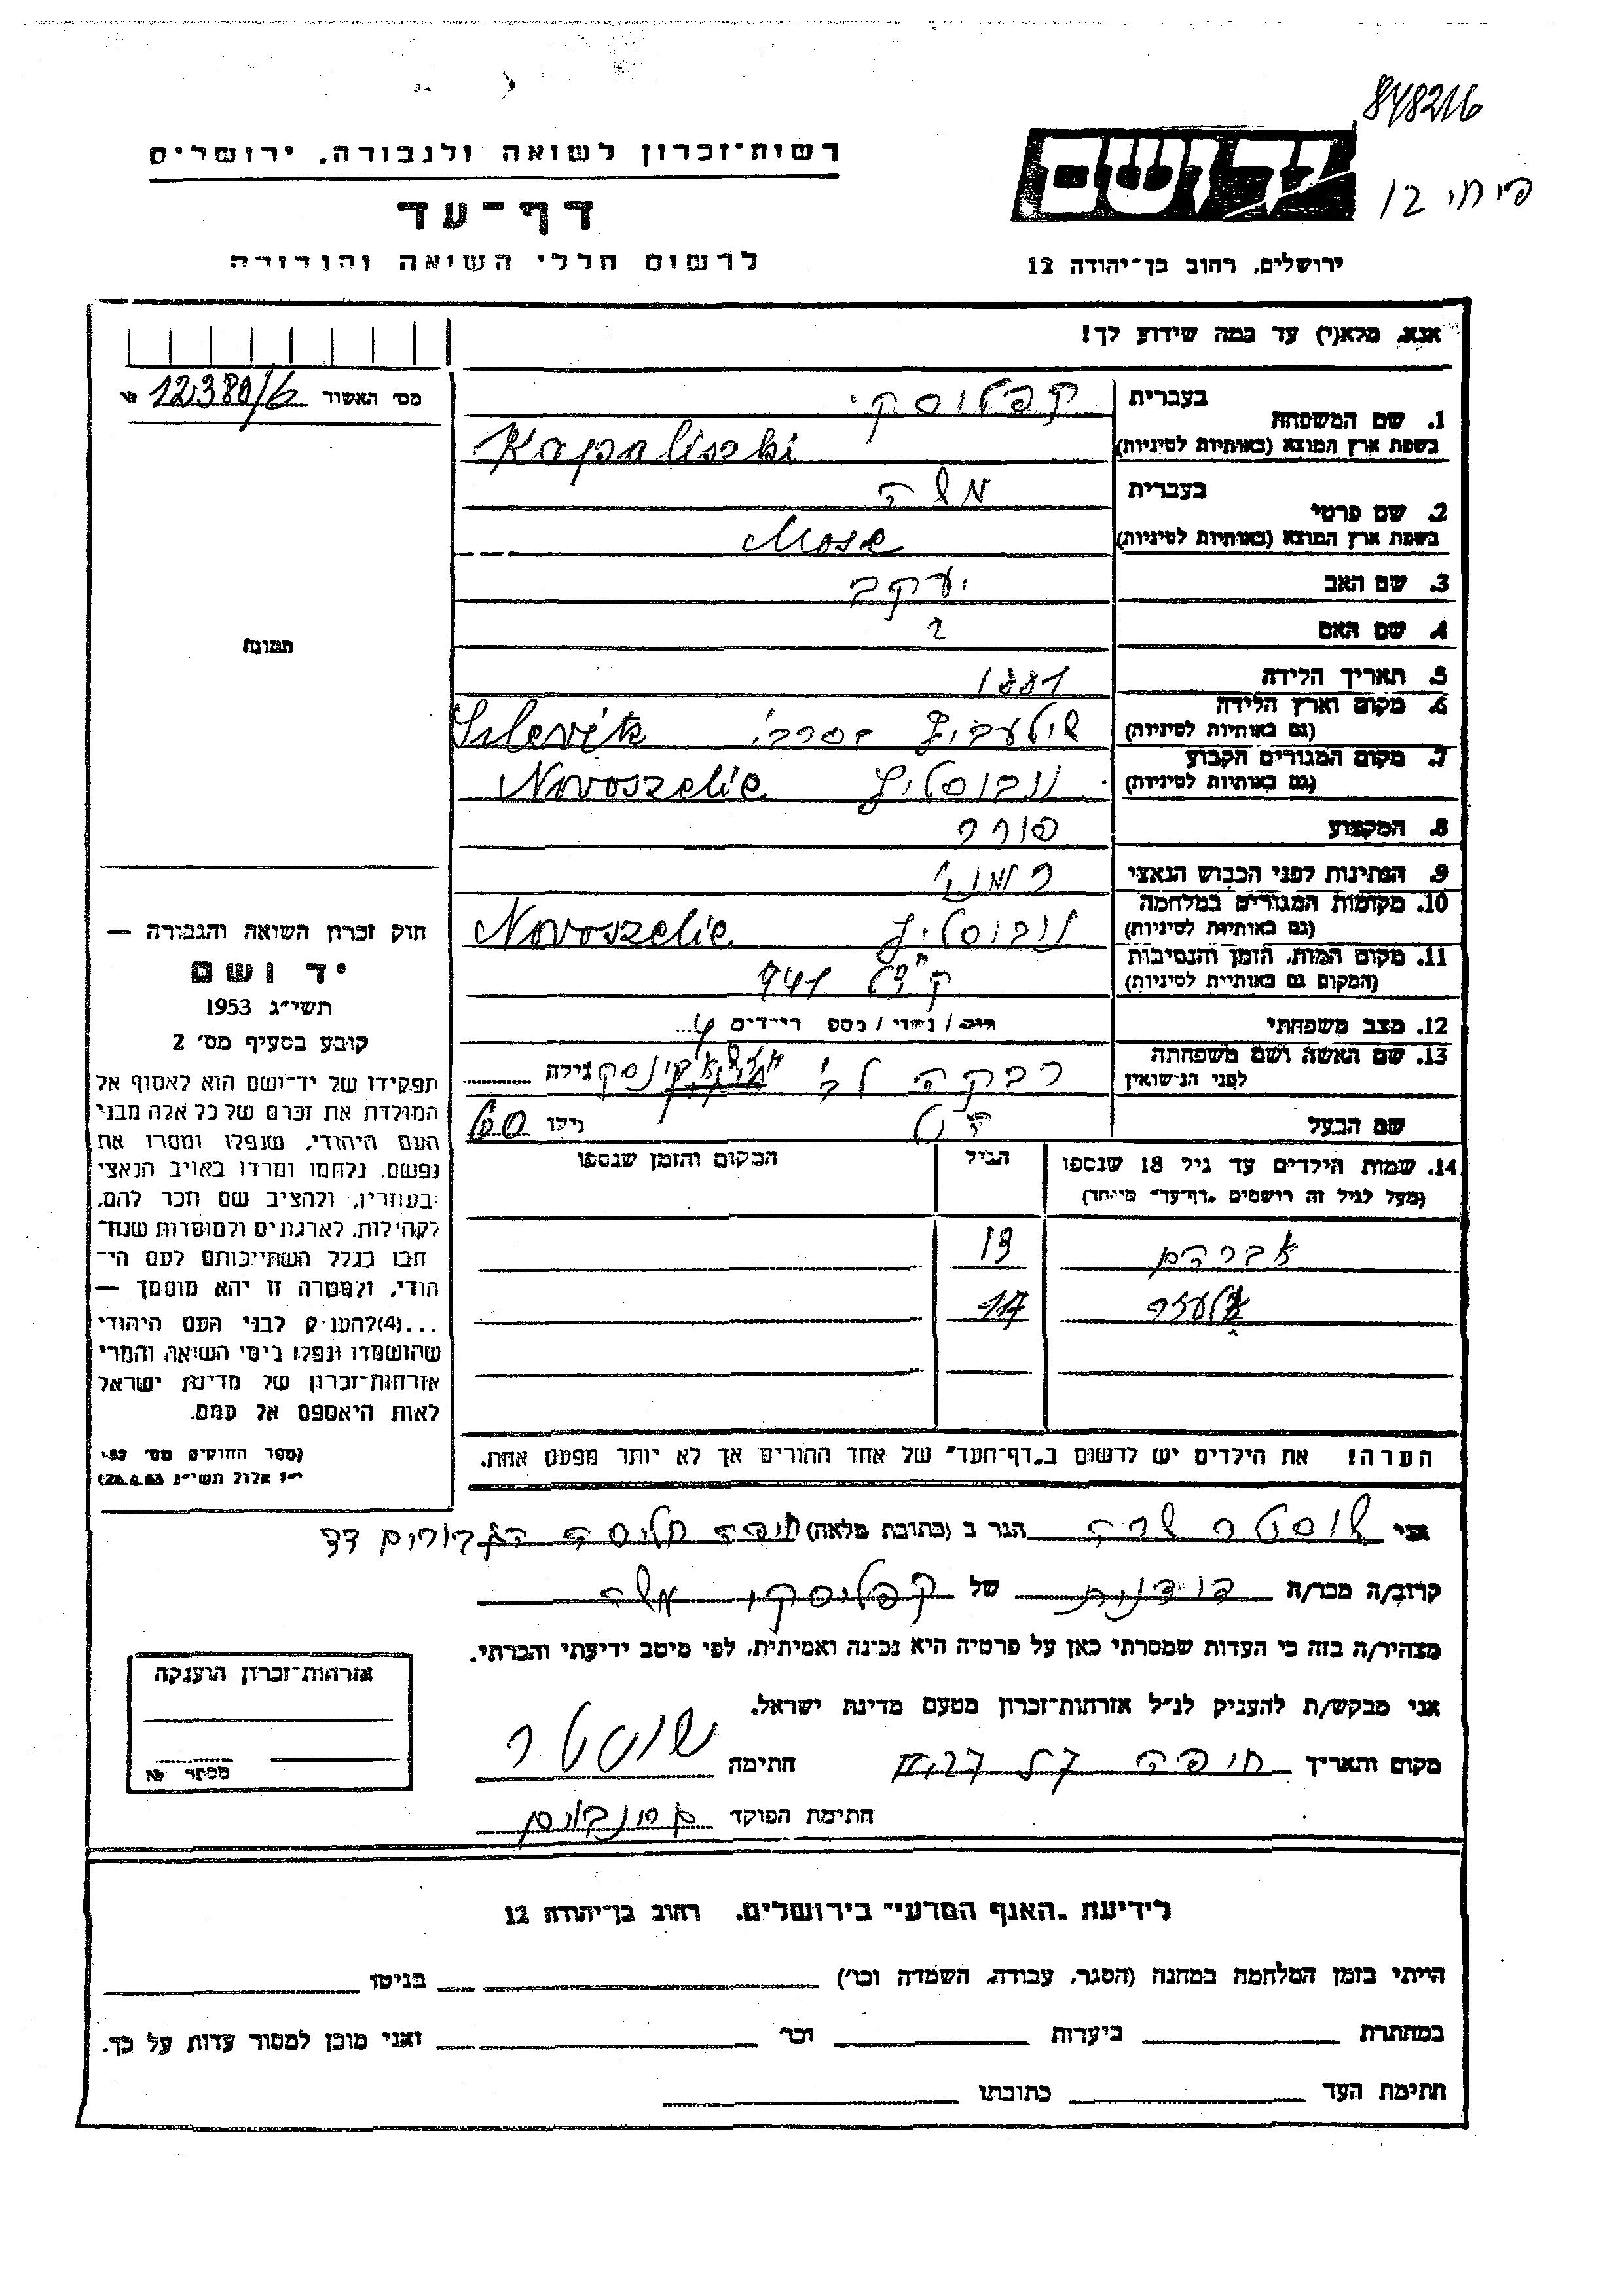 848216
רשות־זכרון לשואה ולגבורה, ירושלים
יד ושם
דף־עד
לרשום חללי השואה והגבורה
ירושלים, רחוב בן־יהודה 12
אנא, מלא(י) עד כמה שידוע לך!
מס׳ האשור 12380/6
1. שם המשפחה
בעברית
בשפת ארץ המוצא (באותיות לטיניות) Kapaliszki
2. שם פרטי
בעברית משה
בשפת ארץ המוצא (באותיות לטיניות) Mose
3. שם האב יעקב
4. שם האם ?
5. תאריך הלידה 1881
6. מקום וארץ הלידה
(גם באותיות לטיניות)
7. מקום המגורים הקבוע Novoszelic
(גם באותיות לטיניות)
8. המקצוע סוחר
9. הנתינות לפני הכבוש הנאצי
10. מקומות המגורים במלחמה Novoszelic
(גם באותיות לטיניות)
11. מקום המות, הזמן והנסיבות 941
(המקום גם באותיות לטיניות)
12. מצב משפחתי
13. שם האשה ושם משפחתה רבקה גילה
לפני הנישואין
שם הבעל גילו 60
14. שמות הילדים עד גיל 18 שנספו הגיל המקום והזמן שנספו
(מעל לגיל זה רושמים „דף־עד״ מיוחד)
אברהם 13
17
הערה! את הילדים יש לרשום ב„דף־העד״ של אחד ההורים אך לא יותר מפעם אחת.
תמונה
חוק זכרון השואה והגבורה —
יד ושם
תשי״ג 1953
קובע בסעיף מס׳ 2
תפקידו של יד־ושם הוא לאסוף אל
המולדת את זכרם של כל אלה מבני
העם היהודי, שנפלו ומסרו את
נפשם, נלחמו ומרדו באויב הנאצי
ובעוזריו, ולהציב שם וזכר להם,
לקהילות, לארגונים ולמוסדות שנח־
רבו בגלל השתייכותם לעם הי־
הודי, ולמטרה זו יהא מוסמך —
...(4) להעניק לבני העם היהודי
שהושמדו ונפלו בימי השואה והמרי
אזרחות־זכרון של מדינת ישראל
לאות היאספם אל עמם.
(ספר החוקים מס׳ 132
י״ז אלול תשי״ג
אני שוסטר שרה הגר ב (כתובת מלאה) חיפה חליסה
קרוב/ה מכר/ה של קפליסקי משה
מצהיר/ה בזה כי העדות שמסרתי כאן על פרטיה היא נכונה ואמיתית, לפי מיטב ידיעתי והכרתי.
אני מבקש/ת להעניק לנ״ל אזרחות־זכרון מטעם מדינת ישראל.
מקום ותאריך חיפה חתימה שוסטר
חתימת הפוקד
אזרחות־זכרון הוענקה
מספר
לידיעת „האגף המדעי״ בירושלים, רחוב בן־יהודה 12
הייתי בזמן המלחמה במחנה (הסגר, עבודה, השמדה וכו׳) בגיטו
במחתרת ביערות וכו׳ ואני מוכן למסור עדות על כך.
חתימת העד כתובתו